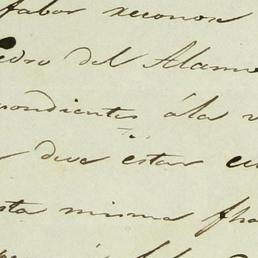 fabor reconos
edro del Alamo
pondientes ála v
deve estar cu
sta misma fha